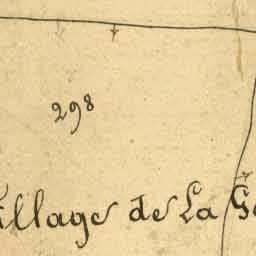 298
Village de La